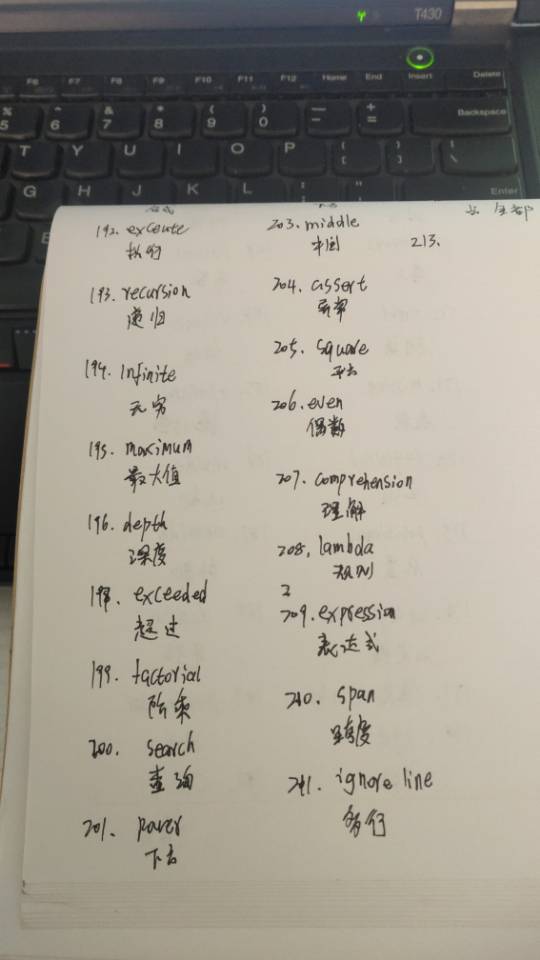 T430
F6 F7 F8 F9 F10 F11 F12 Home End Insert Delete
% ^ & * ( ) — +
5 6 7 8 9 0 - = Backspace
T Y U I O P { [ } ] | \
G H J K L Enter
192. excute
执行
193. recursion
递归
194. Infinite
无穷
195. maximum
最大值
196. depth
深度
198. exceeded
超过
199. factorial
阶乘
200. search
查询
201. power
203. middle
中间
213.
204. assert
205. square
平方
206. even
偶数
207. comprehension
理解
208. lambda
规则
2
209. expression
表达式
210. span
跨度
211. ignore line